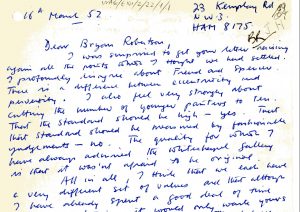 23 Kemplay Rd
N.W.3.
HAM 8175.
16th March 52.
Dear Bryan Robertson,
I was surprised to get your letter raising
again all the points which I thought we had settled.
I profoundly disagree about Freud and Spencer.
There is a difference between eccentricity and
perversity. I also feel very strongly about
cutting the number of younger painters to ten.
That the standard should be high – yes. That
that standard should be measured by fashionable
judgements – no. The quality for which I
have always admired the Whitechapel Gallery
is that it wasn't afraid to be original.
All in all, I think that we each have
a very different set of values and that although
I have already spent a good deal of time
it would only waste yours